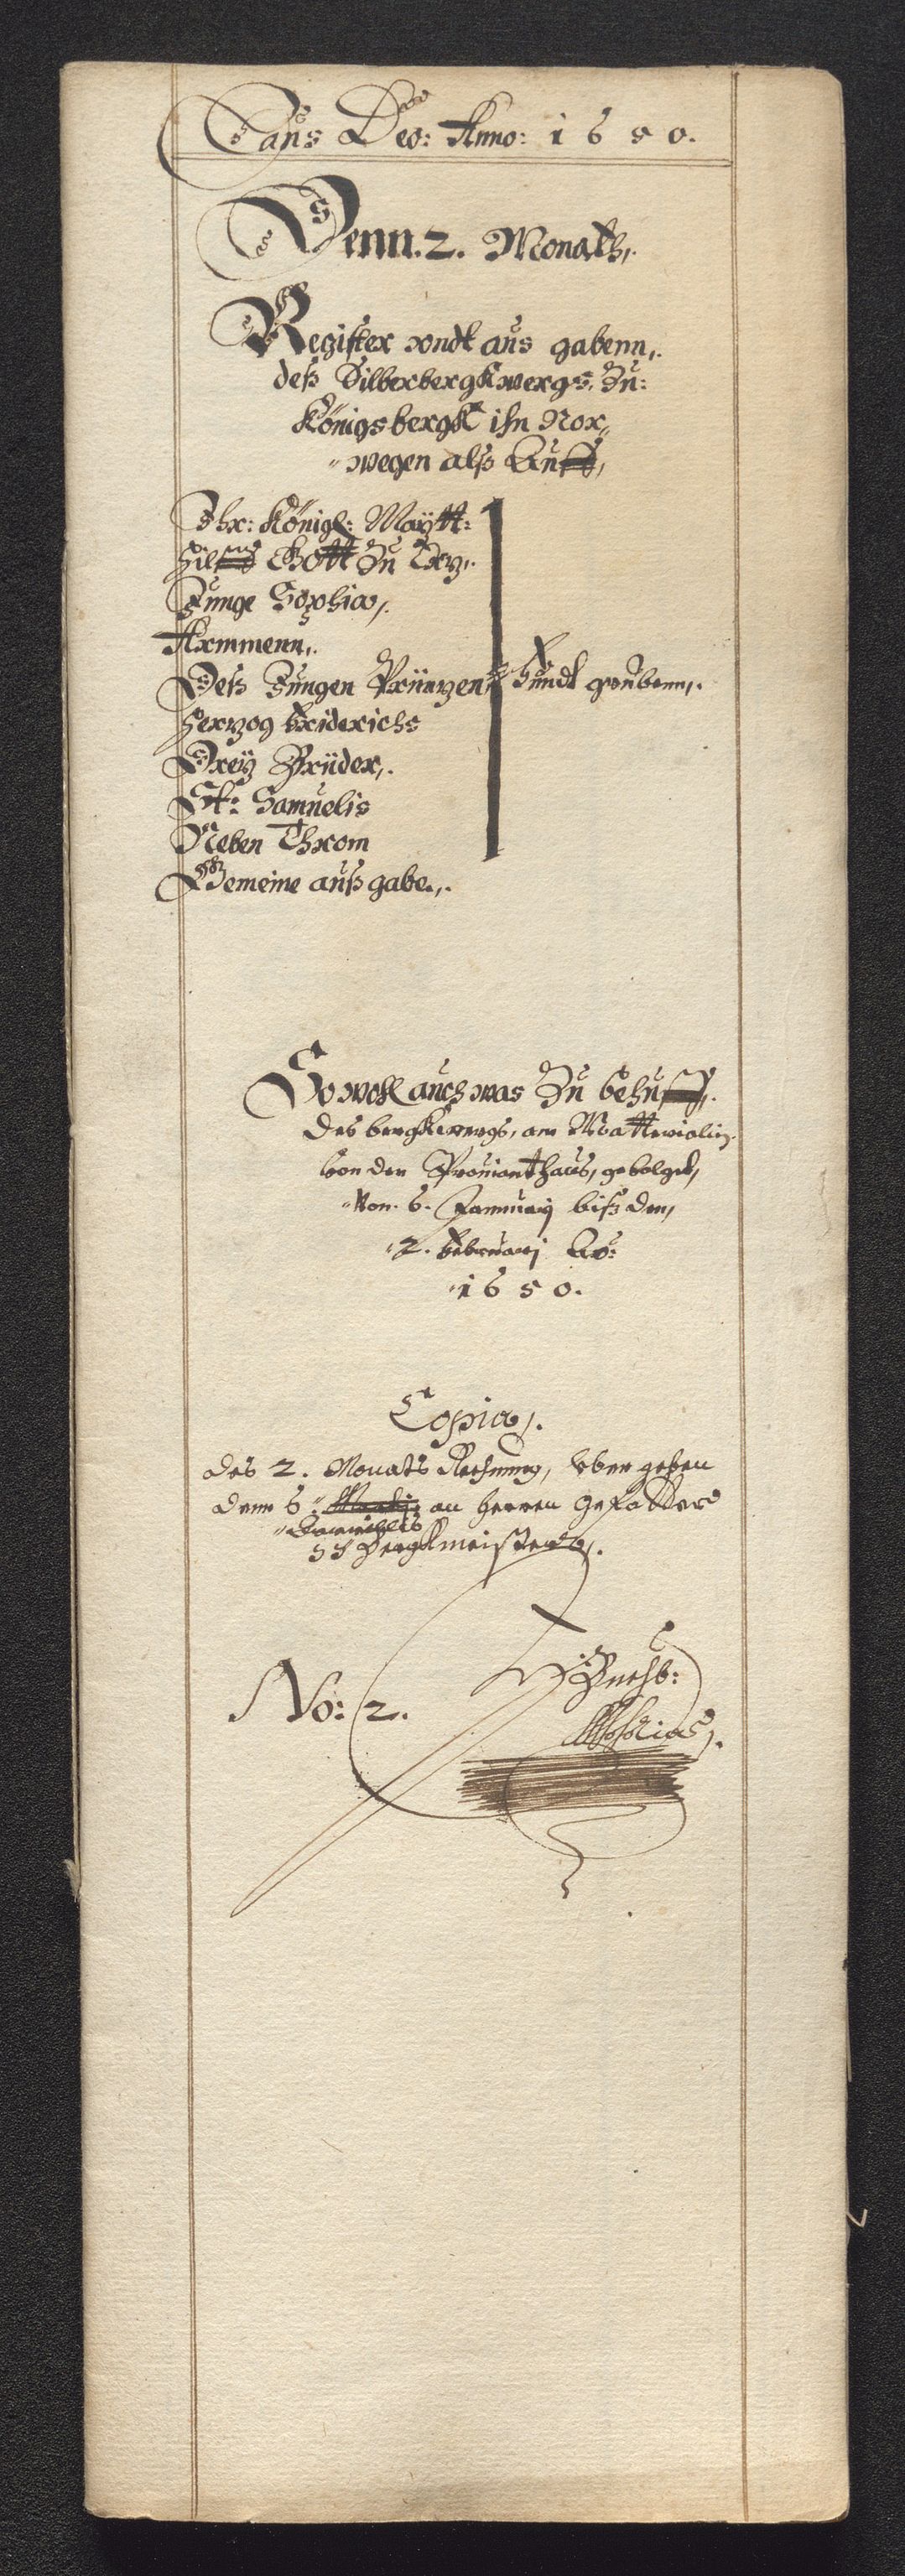 Laus Deo: Anno: 1650.
Denn. 2. Monath,.
Register vndt aus gabenn,.
deß Silberbergkwergs. Zu:
Königsbergk ihn Nor,,
"wegen alß Auff,
Ihr: Königl: Maÿtt:
Hilff Gott Zu
Junge Sophia,.
Armmenn,.
Deß Jungen Printzen Fundt gruben,.
Hertzog Friderichs
Dreÿ Brüder,.
St: Samuelis
Neben Throm
Gemeine außgabe.,.
So woll auch was Zu behuff,.
des bergkwergs, an Matterialien
von den Prouianthaus, gevolget,
"Von. 6. Januarij biß den,
"2. Februarij Ao:
"1650.
Copia,.
des 2. Monats Rechnung, vbergeben
denn 6 an Herren
Bergkmeister
No: 2.